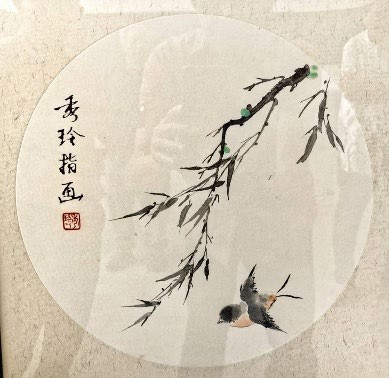 秀玲指画